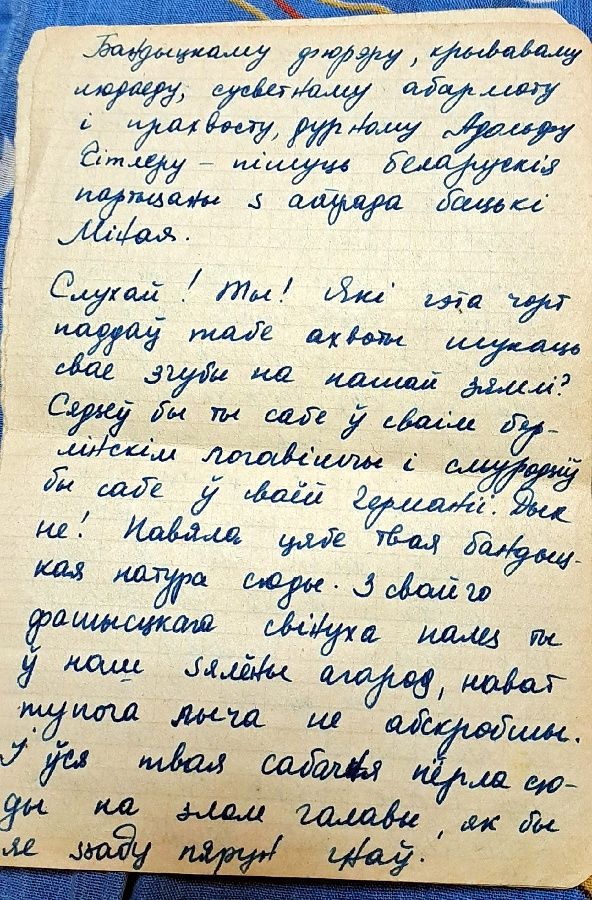 Бандыцкаму фюрэру, крываваму
людаеду, сусветнаму абармоту
і прахвосту, дурному Адольфу
Гітлеру – пішуць беларускія
партызаны з атрада бацькі
Міная.
Слухай! Ты! Які гэта чорт
паддаў табе ахвоты шукаць
свае згубы на нашай зямлі?
Сядзеў бы ты сабе ў сваім бер-
лінскім логавішчы і смуродзіў
бы сабе ў сваёй Германіі. Дык
не! Павяла цябе твая бандыц-
кая натура сюды. З свайго
фашысцкага свінуха палез ты
ў наш зялёны агарод, нават
тупога лыча не абскробшы.
І ўся твая сабачня пёрла сю-
ды на злом галавы, як бы
яе ззаду пярун гнаў.